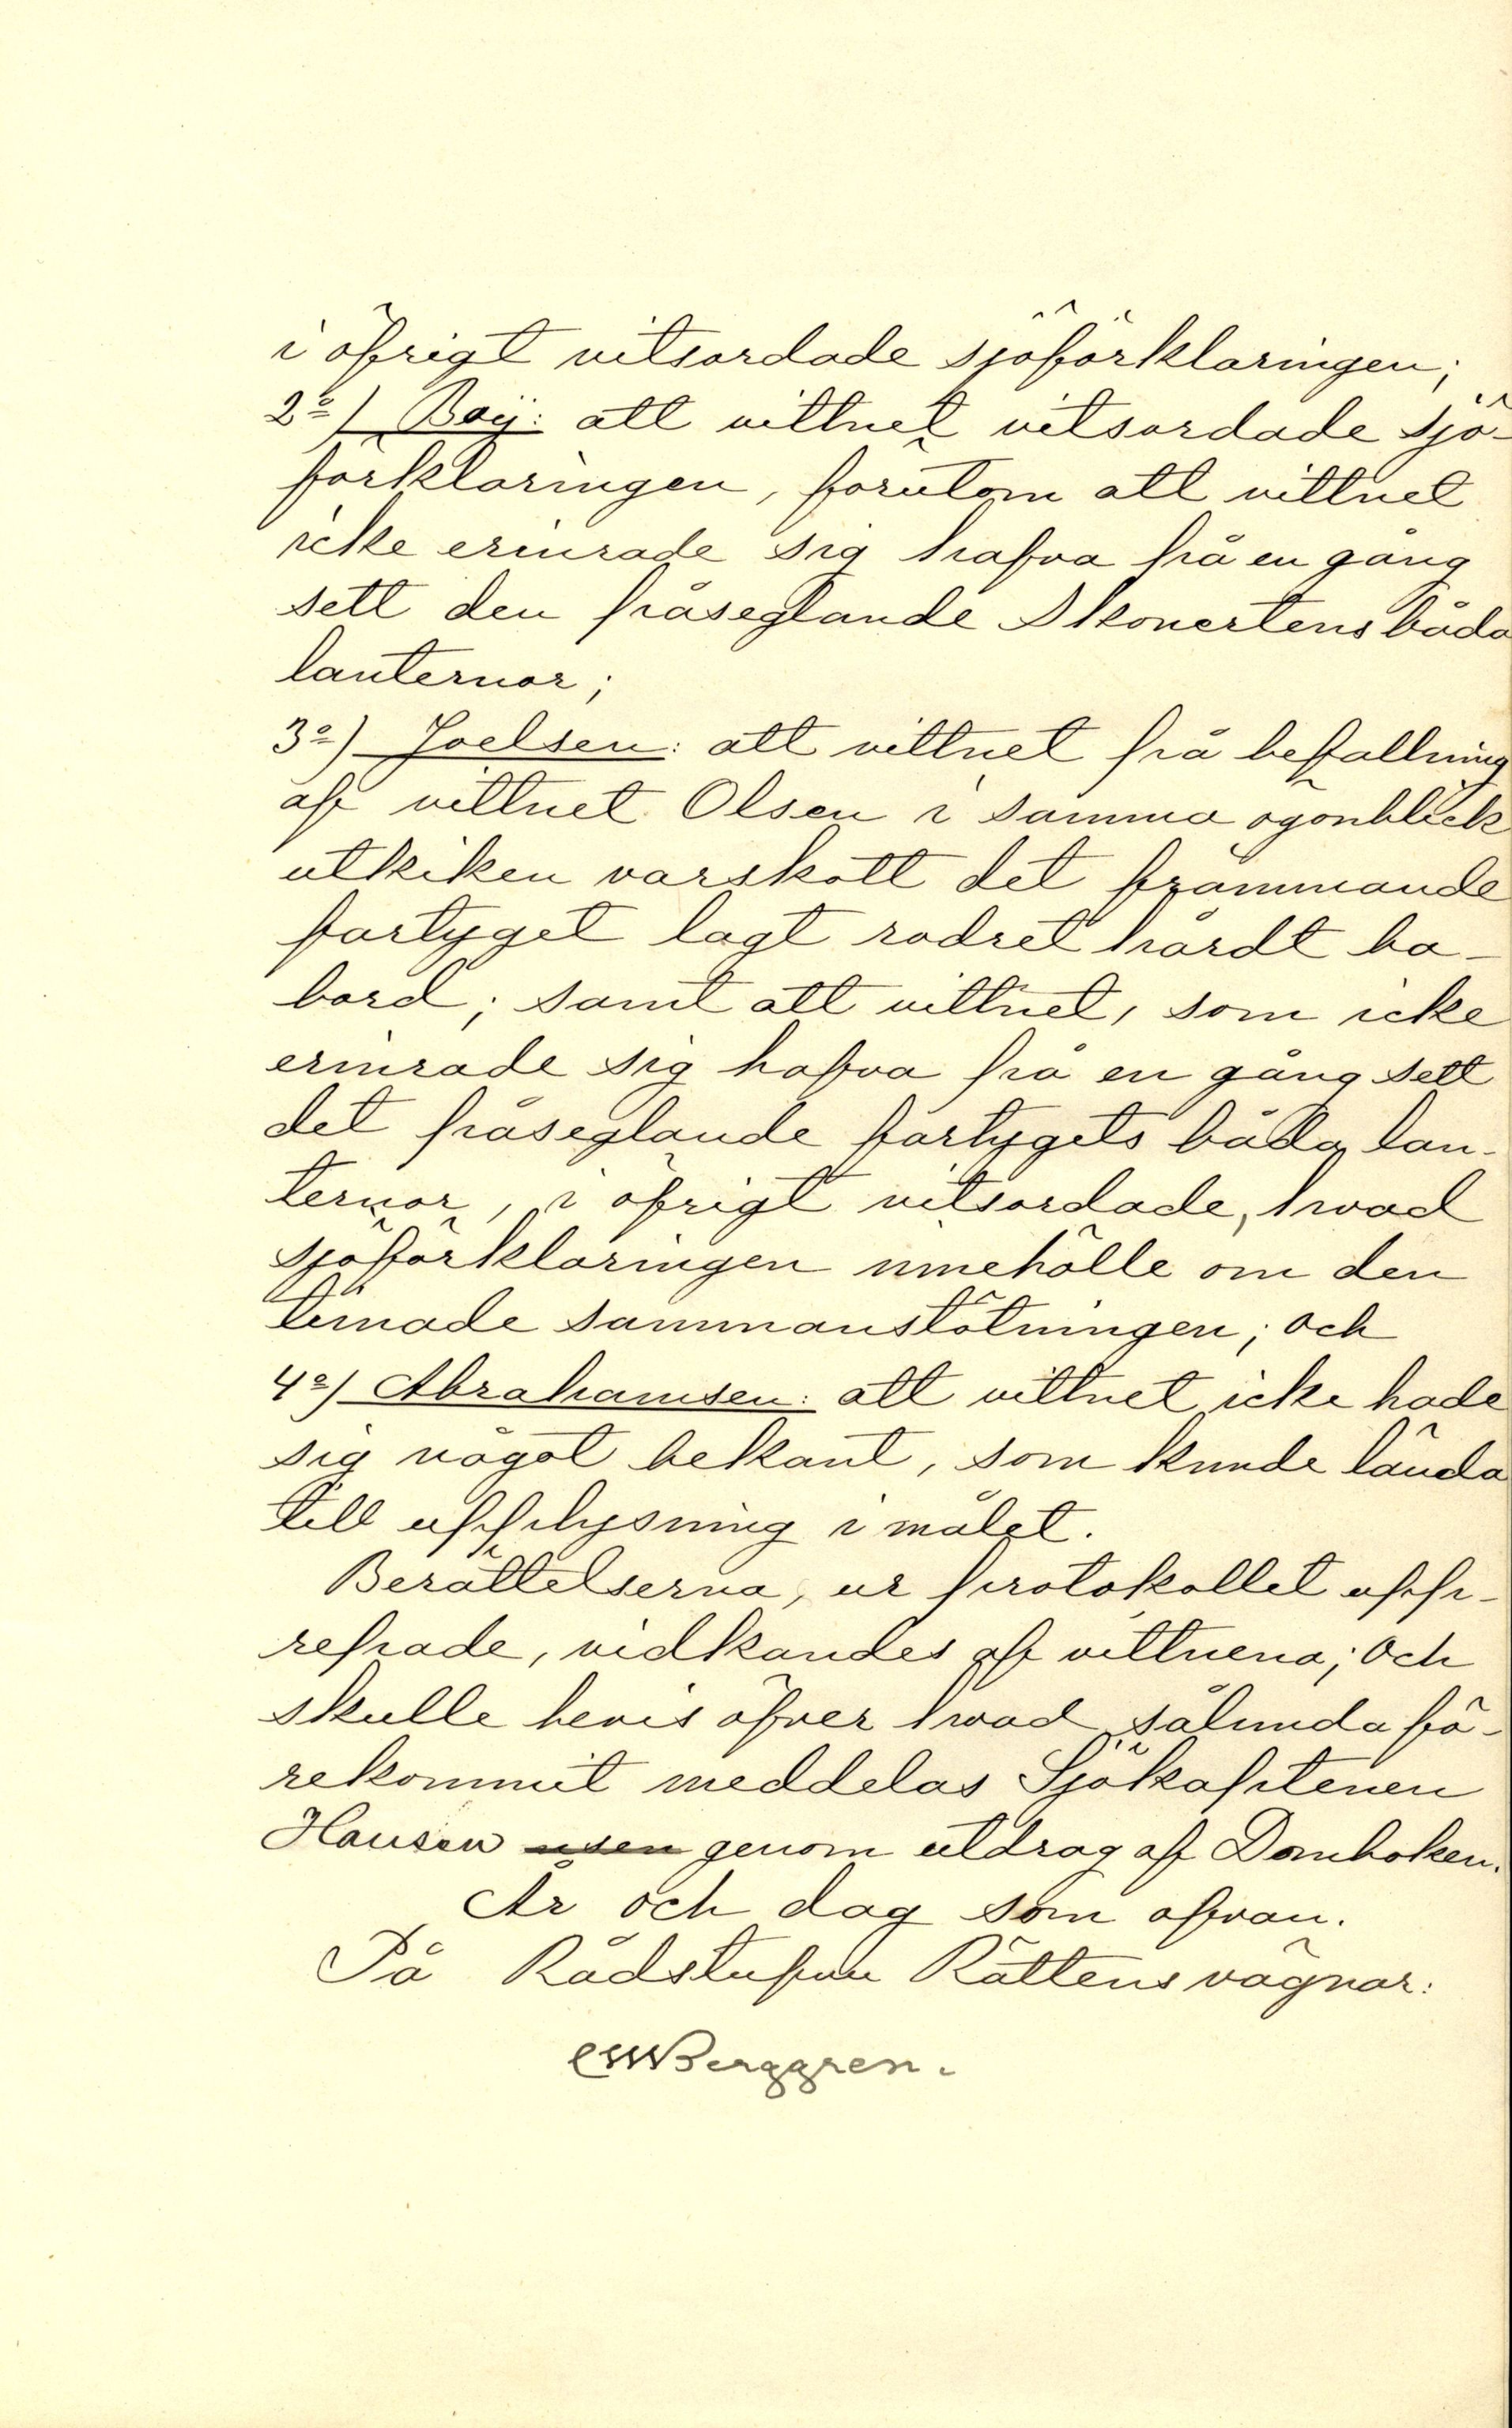 i öfrigt vitsordade sjöförklaringen;
2o) Boij: att vittnet vitsordade sjö-
förklaringen, förutom att vittnet
icke erinrade sig hafva på en gång
sett den påseglande Skonertens båda
lanternor;
3o) Joelsen: att vittnet på befallning
af vittnet Olsen i samma ögonblick
utkiken varskött det främmande
fartyget lagt rodret hårdt ba-
bord; samt att vittnet, som icke
erinrade sig hafva på en gång sett
det påseglande fartygets båda lan-
ternor, i öfrigt vitsordade, hvad
sjöförklaringen innehölle om den
timade sammanstötningen; och
4o) Abrahamsen: att vittnet icke hade
sig något bekant, som kunde lända
till upplysning i målet.
Berättelserna, ur protokollet upp-
repade, vidkändes af vittnena; och
skulle bevis öfver hvad sålunda fö-
rekommit meddelas Sjökaptenen
Hansen genom utdrag af Domboken.
År och dag som ofvan.
På Rådstufvu Rättens vägnar:
CWBerggren.